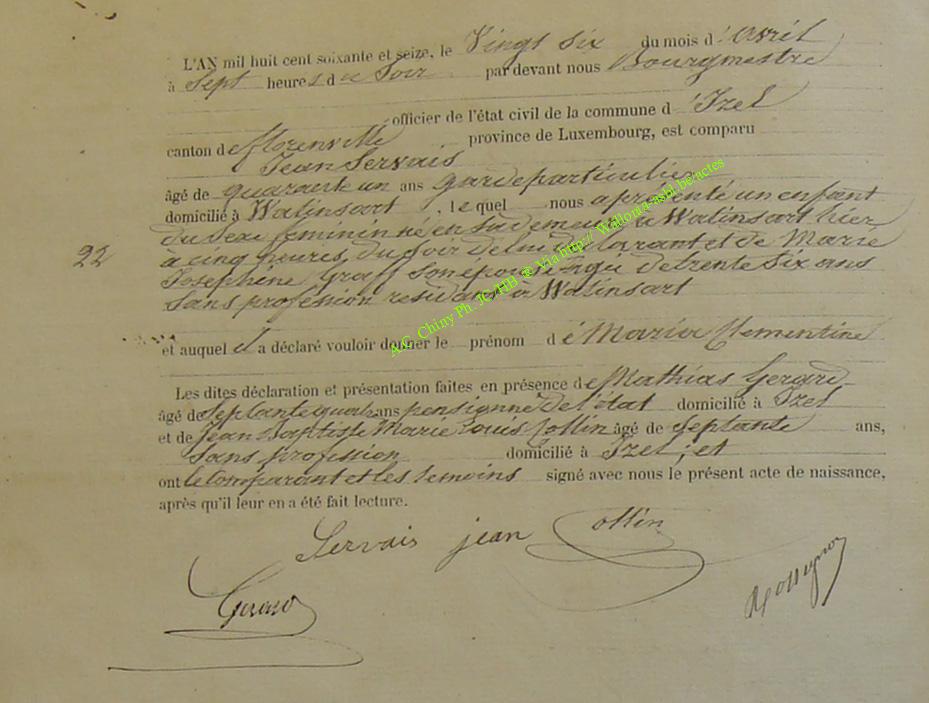 L'AN mil huit cent soixante et seize, le Vingt Six du mois d'Avril
à Sept heures du Soir par devant nous Bourgmestre
officier de l'état civil de la commune d'Izel
canton de florenville province de Luxembourg, est comparu
Jean Servais
âgé de quarante un ans garde particulier
domicilié à Watinsart, lequel nous a présenté un enfant
du sexe feminin né en sa demeure à Watinsart hier
22
à cinq heures du soir de lui déclarant et de Marie
Josephine Graff son épouse agée de trente six ans
sans profession residant à Watinsart
et auquel il a déclaré vouloir donner le prénom de Maria Clementine
Les dites déclaration et présentation faites en présence de Mathias Gerard
âgé de septante quatre ans pensionné de l'état domicilié à Izel
et de Jean Baptiste Marie Louis Collin âgé de septante ans,
sans profession domicilié à Izel; et
ont le Comparant et les temoins signé avec nous le présent acte de naissance,
après qu'il leur en a été fait lecture.
Servais jean Collin
Gerard Rossignon
A.G. Chiny Ph. JC/HB @ Via http:// Wallonia-asbl.be:actes